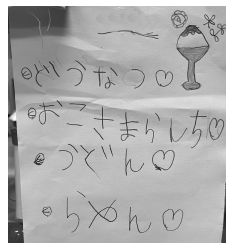 どうなつ♡
おこさまらんち♡
うどん♡
らめん♡